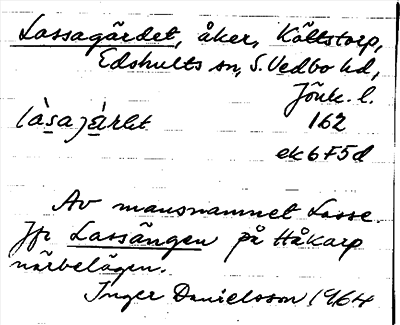 Lassagärdet, åker, Költstorp,
Edshults sn, S. Vedbo hd,
Jönk. l.
làsajä̀rḷet 162
ek 6F5d
Av mansnamnet Lasse.
Jfr Lassängen på Håkarp
närbelägen.
Inger Danielsson 1964